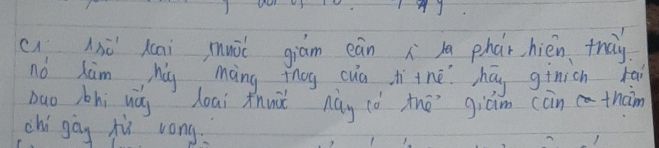 C1: 1 số loại thuốc giảm cân phát hiện thấy
nó làm hủy màng trong của ti thể. hãy g thích tại
sao khi uống loại thuốc này có thể giảm cân thậm
chí gây tử vong.